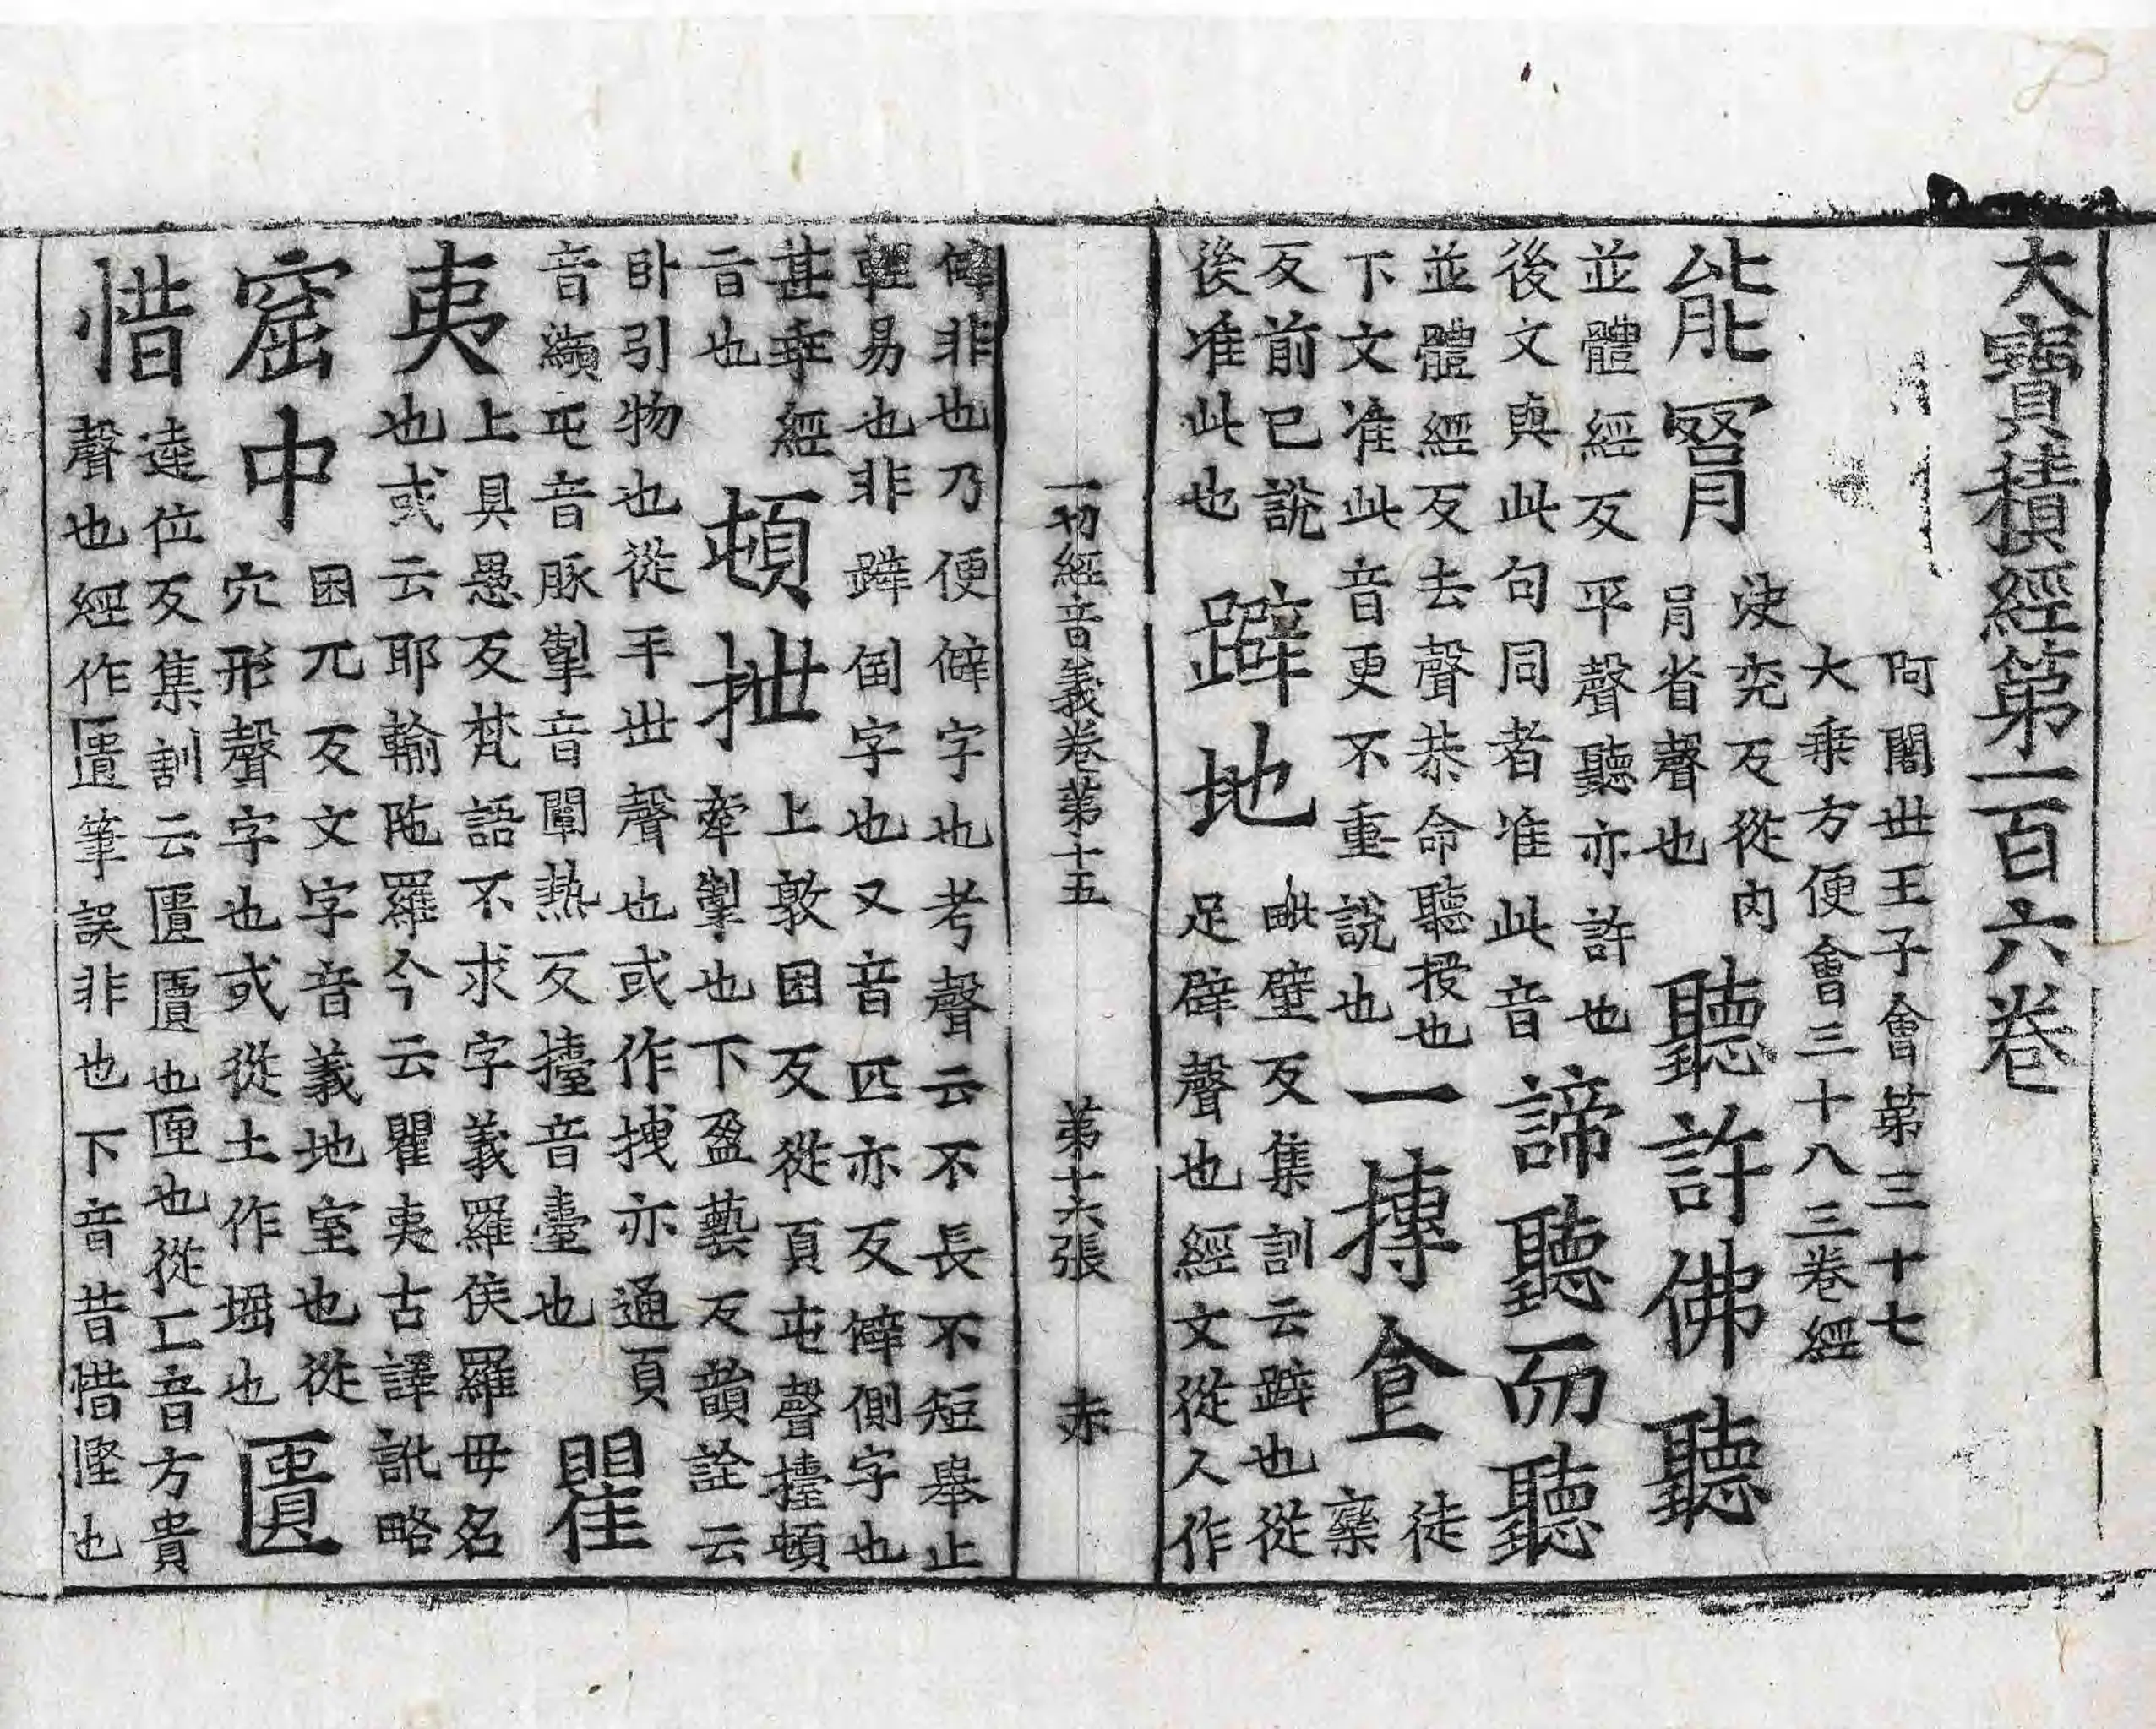 大寶積經第一百六卷
阿闍世王子會第三十七
大乘方便會三十八三卷經
能罥
決兖反從冈
肙省聲也
聽許佛聽
並體經反平聲聽亦許也
後文與此句同者准此音
諦聽而聽
並體經反去聲恭命聽授也
下文准此音更不重說也
一摶食
徒欒
反前已說
後准此也
躃地
毗壁反集訓云躃也從
足辟聲也經文從人作
僻非也乃便僻字也考聲云不長不短舉止
輕易也非躃倒字也又音匹亦反僻側字也
甚乖經
旨也
頓抴
上敦困反從頁屯聲擡頓
牽掣也下盈藝反韻詮云
卧引物也從手世聲也或作拽亦通頁
音纈屯音豚掣音闡熱反擡音臺也
瞿夷
上具愚反梵語不求字義羅侯羅毋名
也或云耶輸陁羅今云瞿夷古譯訛略
窟中
困兀反文字音義地室也從
穴形聲字也或從土作堀也
匱惜
逵位反集訓云匱匱也匣也從匚音方貴
聲也經作匱筆誤非也下音昔惜慳也
一切經音義卷第十五
第十六張
赤